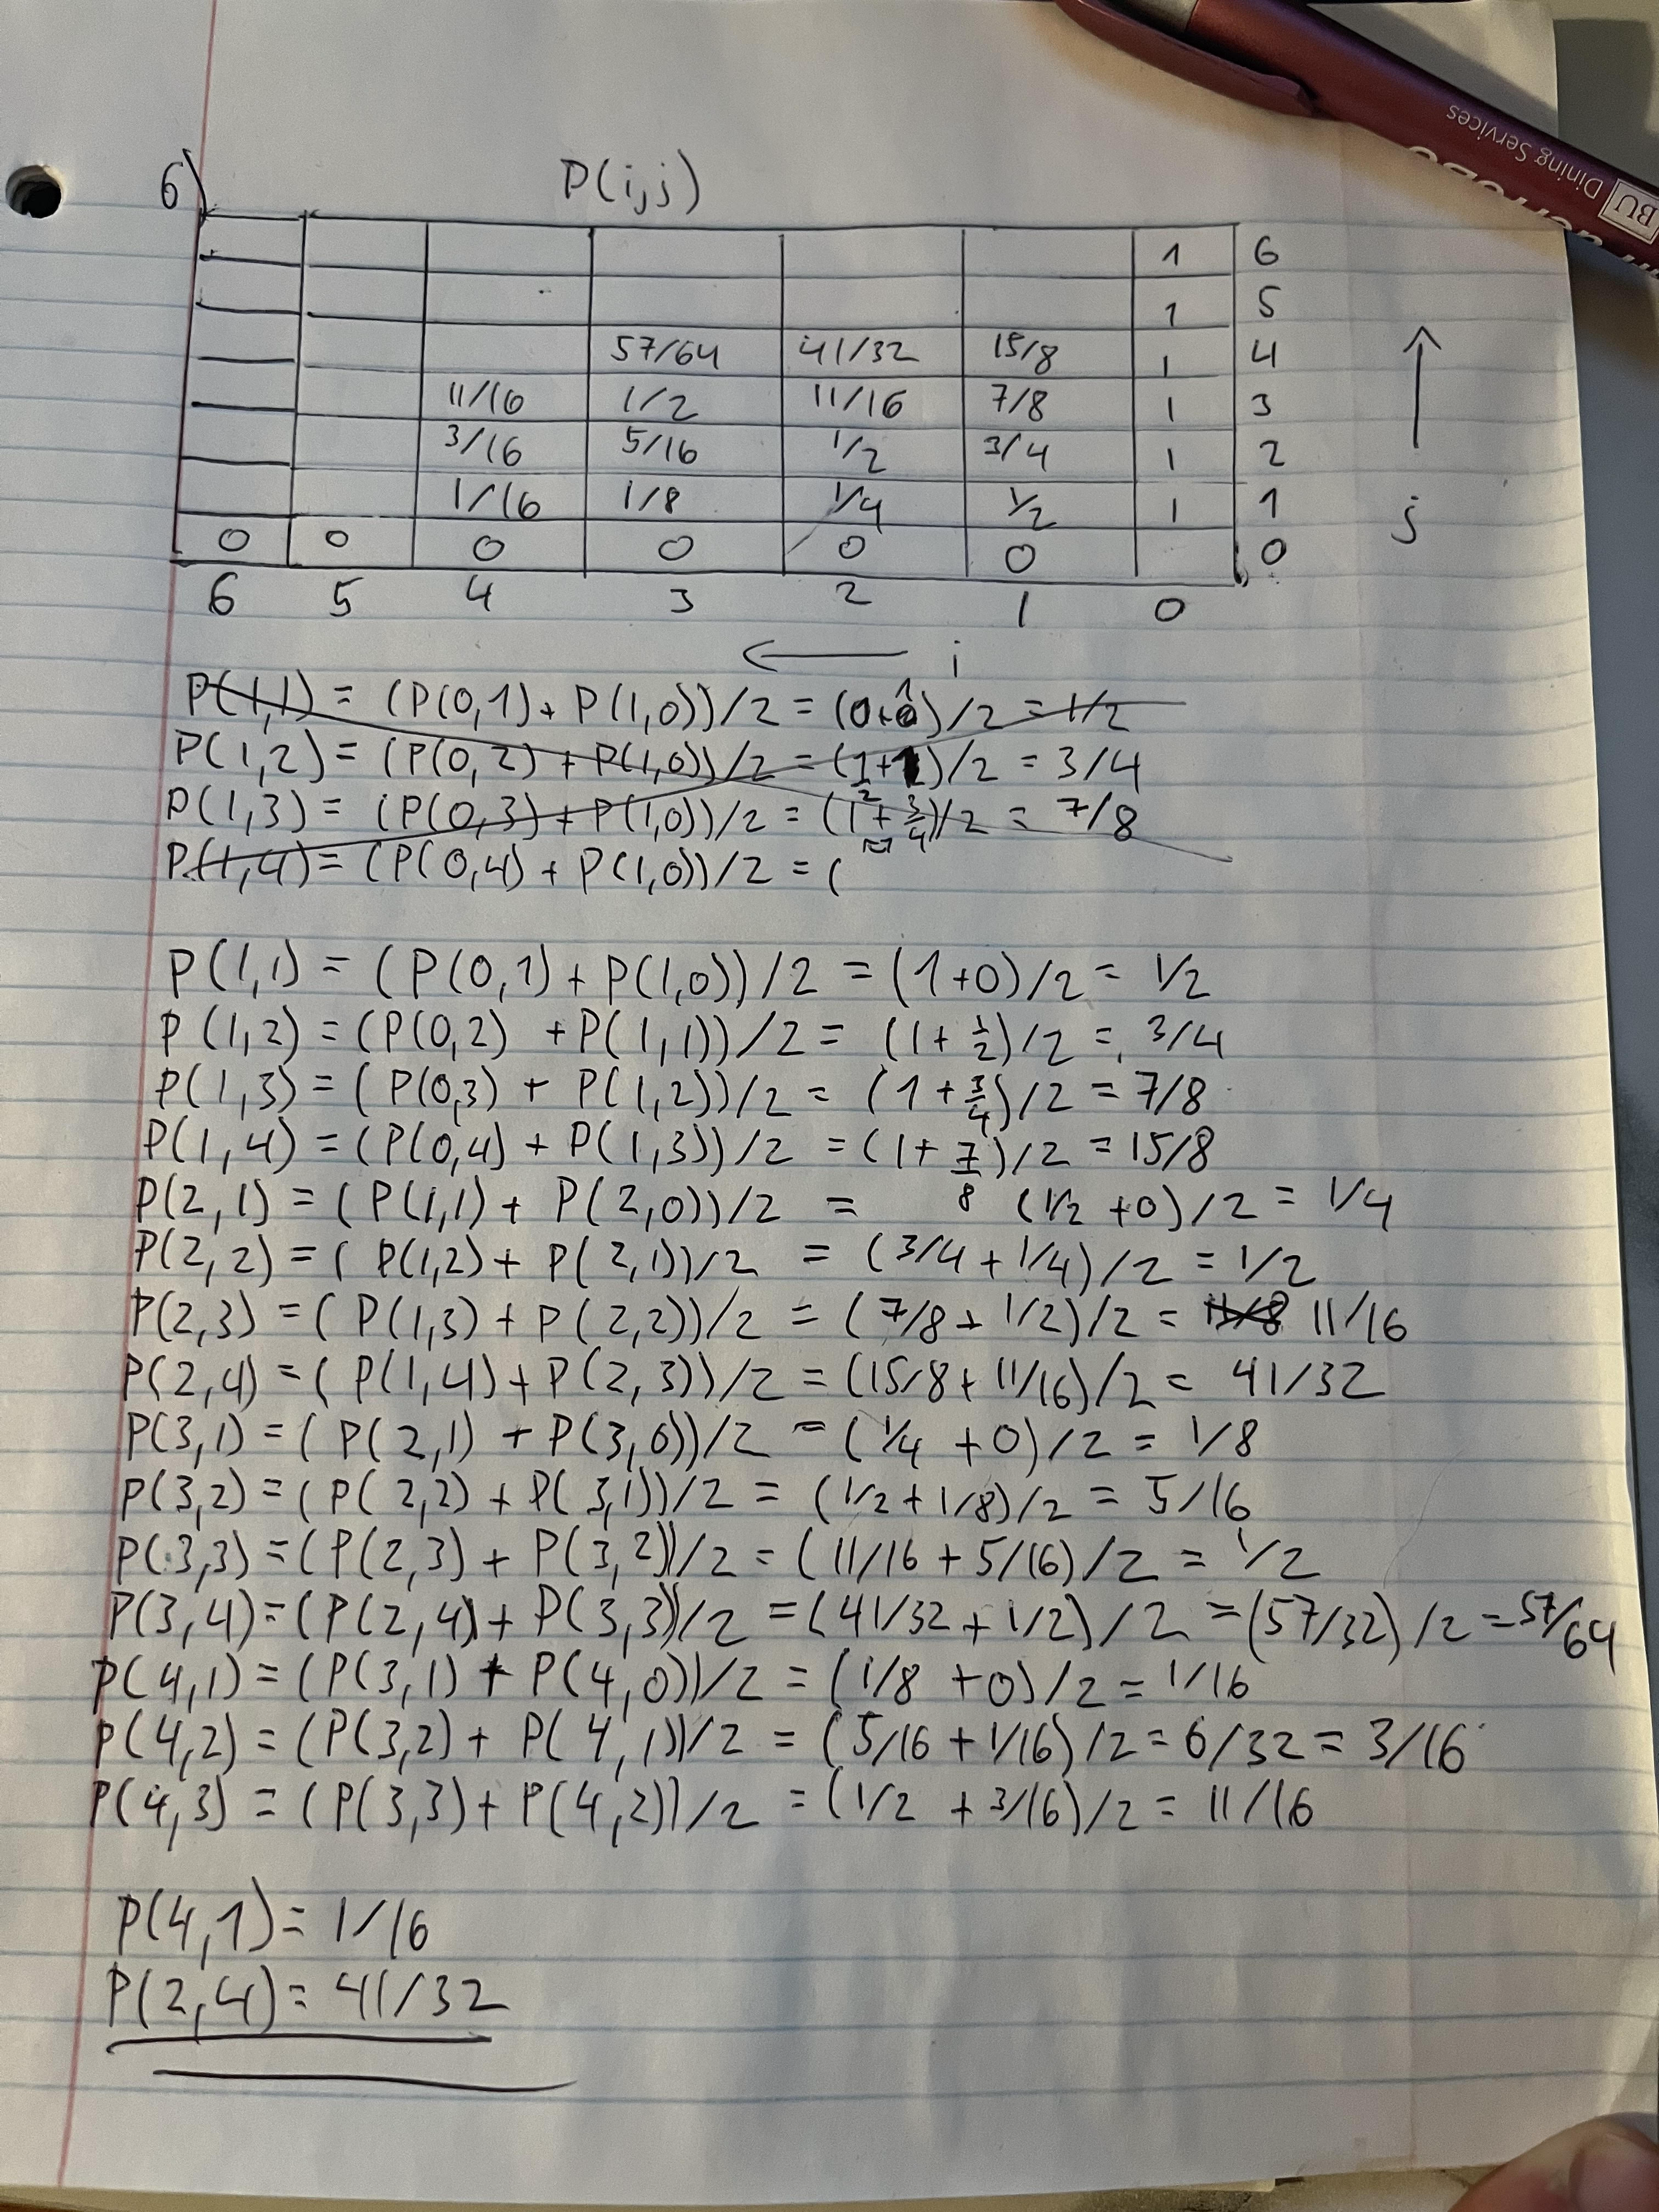 Dining Services
BU
6)
P(i,j)
1 6
1 5
57/64 41/32 15/8 1 4
11/16 1/2 11/16 7/8 1 3
3/16 5/16 1/2 3/4 1 2
1/16 1/8 1/4 1/2 1 1
0 0 0 0 0 0 0
6 5 4 3 2 1 0
↑
j
← i
P(1,1) = (P(0,1) + P(1,0))/2 = /2 = 1/2
P(1,2) = (P(0,2) + P(1,0))/2 = /2 = 3/4
P(1,3) = (P(0,3) + P(1,0))/2 = (1 + 3/4)/2 = 7/8
P(1,4) = (P(0,4) + P(1,0))/2 = (
P(1,1) = (P(0,1) + P(1,0))/2 = (1+0)/2 = 1/2
P(1,2) = (P(0,2) + P(1,1))/2 = (1 + 1/2)/2 = 3/4
P(1,3) = (P(0,3) + P(1,2))/2 = (1 + 3/4)/2 = 7/8
P(1,4) = (P(0,4) + P(1,3))/2 = (1 + 7/8)/2 = 15/8
P(2,1) = (P(1,1) + P(2,0))/2 = (1/2 + 0)/2 = 1/4
P(2,2) = (P(1,2) + P(2,1))/2 = (3/4 + 1/4)/2 = 1/2
P(2,3) = (P(1,3) + P(2,2))/2 = (7/8 + 1/2)/2 = 11/16
P(2,4) = (P(1,4) + P(2,3))/2 = (15/8 + 11/16)/2 = 41/32
P(3,1) = (P(2,1) + P(3,0))/2 = (1/4 + 0)/2 = 1/8
P(3,2) = (P(2,2) + P(3,1))/2 = (1/2 + 1/8)/2 = 5/16
P(3,3) = (P(2,3) + P(3,2))/2 = (11/16 + 5/16)/2 = 1/2
P(3,4) = (P(2,4) + P(3,3))/2 = (41/32 + 1/2)/2 = (57/32)/2 = 57/64
P(4,1) = (P(3,1) + P(4,0))/2 = (1/8 + 0)/2 = 1/16
P(4,2) = (P(3,2) + P(4,1))/2 = (5/16 + 1/16)/2 = 6/32 = 3/16
P(4,3) = (P(3,3) + P(4,2))/2 = (1/2 + 3/16)/2 = 11/16
P(4,1) = 1/16
P(2,4) = 41/32